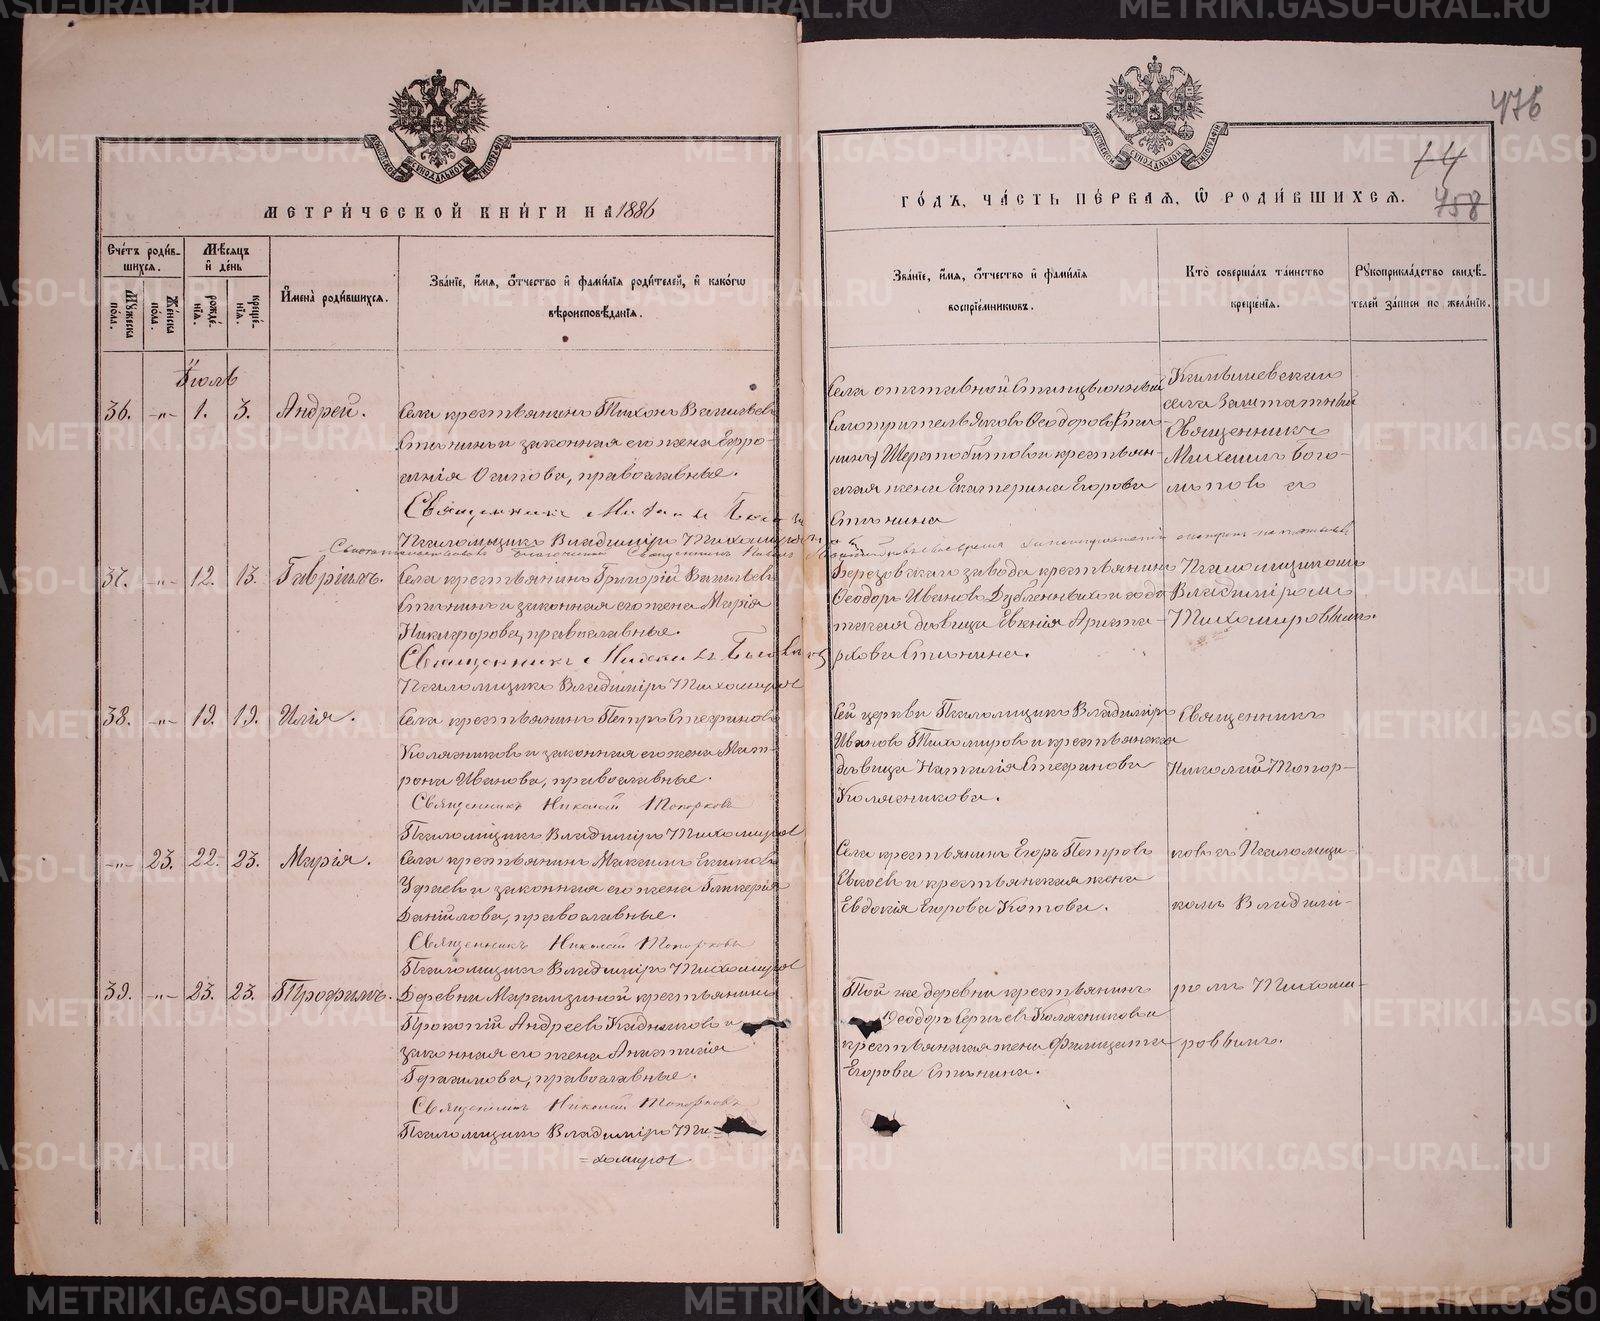 МЕТРИ́ЧЕСКОЙ КНИ́ГИ НА 1886
Сче́тъ роди́в-
шихся.
Му́жеска по́ла.
Же́нска по́ла.
Мѣ́сяцъ и҆ де́нь
рожде́нїѧ.
креще́нїѧ.
И҆мена̀ роди́вшихсѧ.
Зва́нїе, и҆́мѧ, ѻ҆́тчество и҆ фами́лїѧ роди́телей, и҆ како́гѡ
вѣроисповѣ́данїѧ.
Іюль
36. -„- 1. 3. Андрей. Села крестьянинъ Тихонъ Васильевъ
Стенинъ и законная его жена Евфро-
синія Осипова, православные.
Священникъ Михаилъ Боголѣповъ
Псаломщикъ Владиміръ Тихомировъ
37. -„- 12. 13. Гавріилъ. Села крестьянинъ Григорій Васильевъ
Стенинъ и законная его жена Марія
Никифорова, православные.
Священникъ Михаилъ Боголѣповъ
Псаломщикъ Владиміръ Тихомировъ
38. -„- 19. 19. Илія. Села крестьянинъ Петръ Стефановъ
Колясниковъ и законная его жена Мат-
рона Иванова, православные.
Священникъ Николай Топорковъ
Псаломщикъ Владиміръ Тихомировъ
-„- 23. 22. 23. Марія. Села крестьянинъ Максимъ Екимовъ
и законная его жена Гликерія
Даніилова, православные.
Священникъ Николай Топорковъ
Псаломщикъ Владиміръ Тихомировъ
39. -„- 23. 23. Трофимъ. Деревни крестьянинъ
Прокопій Андреевъ и
законная его жена Анастасія
Герасимова, православные.
Священникъ Николай Топорковъ
Псаломщикъ Владиміръ Ти=
=хомировъ
476
14
458
ГО́ДЪ, ЧА́СТЬ ПЕ́РВАѦ, Ѡ҆ РОДИ́ВШИХСѦ.
Зва́нїе, и҆́мѧ, ѻ҆́тчество и҆ фами́лїѧ
воспрїе́мникѡвъ.
Кто̀ соверша́лъ та́инство
креще́нїѧ.
Рꙋкоприкла́дство свидѣ́-
телей за́писи по жела́нїю.
Села отставной Станціонный
Смотритель Яковъ Ѳеодоровъ Сте-
нинъ, и крестьян-
ская жена Екатерина Егорова
Стенина
села Заштатный
Священникъ
Михаилъ Бого-
лѣповъ съ
Березовскаго завода крестьянинъ
Ѳеодоръ Ивановъ и
дѣвица Евгенія Ариста-
рхова Стенина.
Псаломщикомъ
Владиміромъ
Тихомировымъ.
Сей церкви Псаломщикъ Владиміръ
Ивановъ Тихомировъ и крестьянская
дѣвица Наталія Стефанова
Колясникова.
Священникъ
Николай Топор-
Села крестьянинъ Егоръ Петровъ
и крестьянская жена
Евдокія Егорова Котова.
ковъ съ Псаломщи-
комъ Владимі-
Той же деревни крестьянинъ
Ѳеодоръ Сергѣевъ Колясниковъ и
крестьянская жена Фелицата
Егорова Стенина.
ромъ Тихоми-
ровымъ.
METRIKI.GASO-URAL.RU